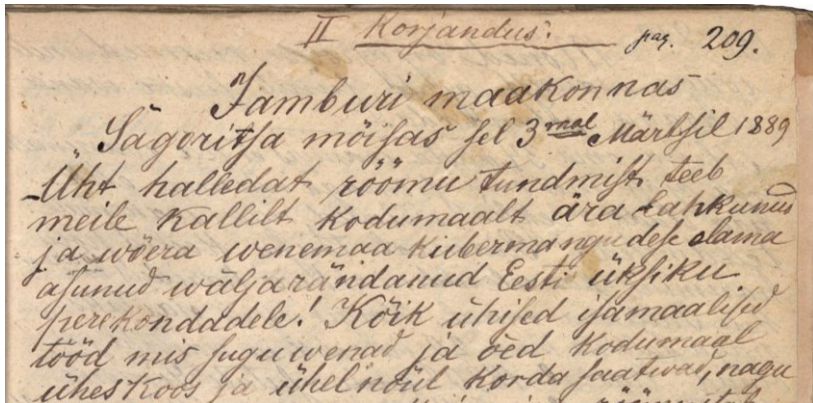 II Korjandus.
pag. 209.
Jamburi maakonnas
Sägoritsa mõisas sel 3mal Märtsil 1889
Üht halledat röömu tundmist teeb
meile kallilt kodumaalt ära lahkunud
ja wõera wenemaa kubermangudese elama
asunud wäljarändanud Eesti üksiku
perekondadele! Kõik ühised isamaalised
tööd mis suguwenad ja õed kodumaal
ühes koos ja ühel nõul korda saatwad, nagu